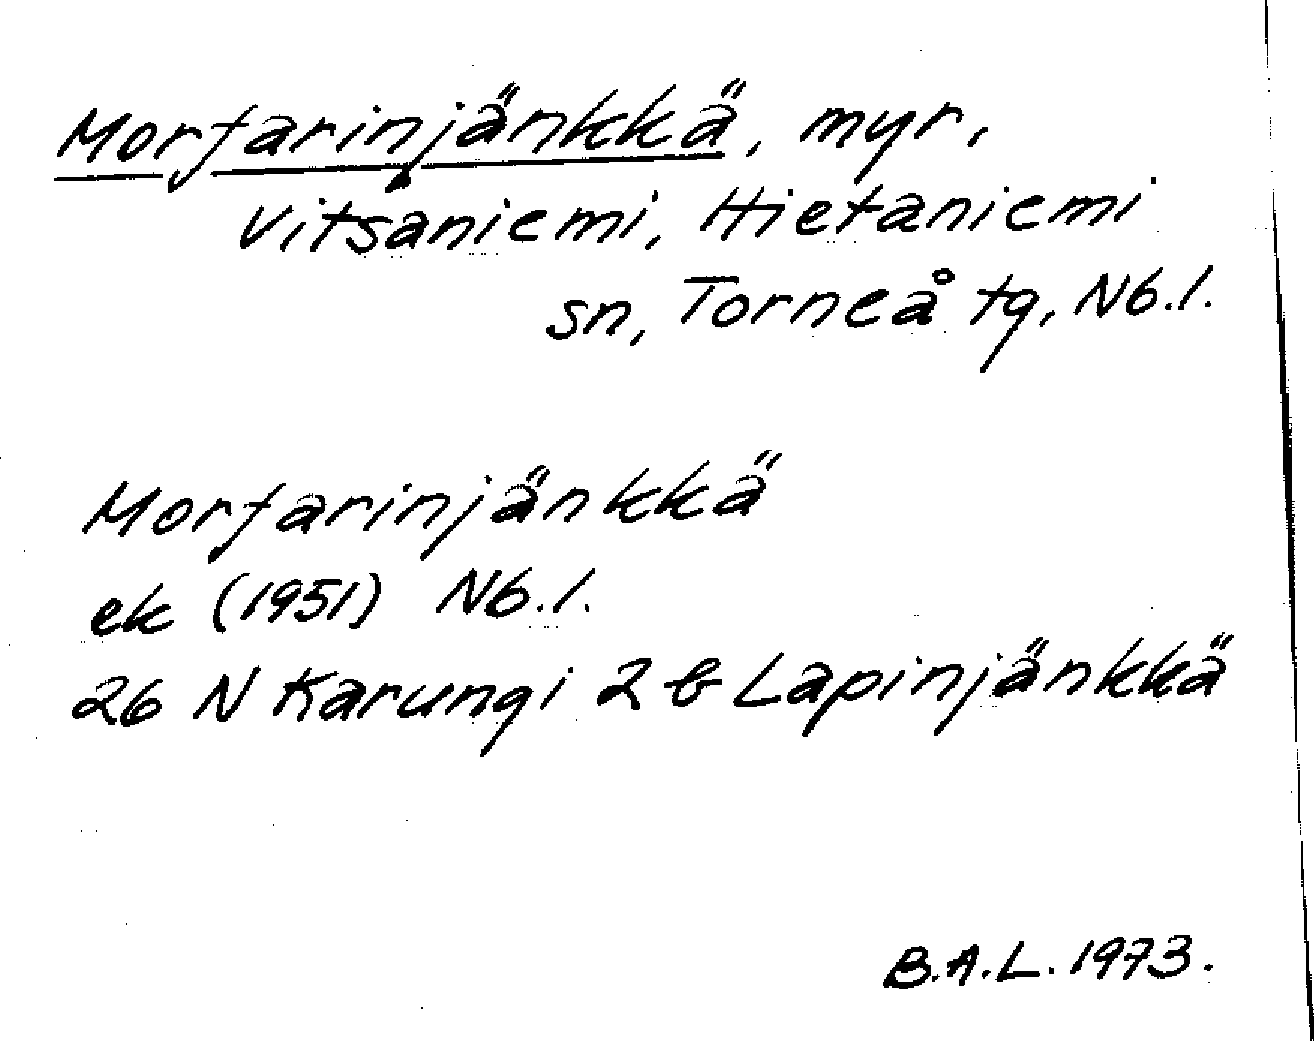 Morfarinjänkkä, myr,
Vitsaniemi, Hietaniemi
sn, Torneå tg, Nb.l.
Morfarinjänkkä
ek (1951) Nb.l.
26 N Karungi 2 b Lapinjänkkä
B.A.L. 1973.